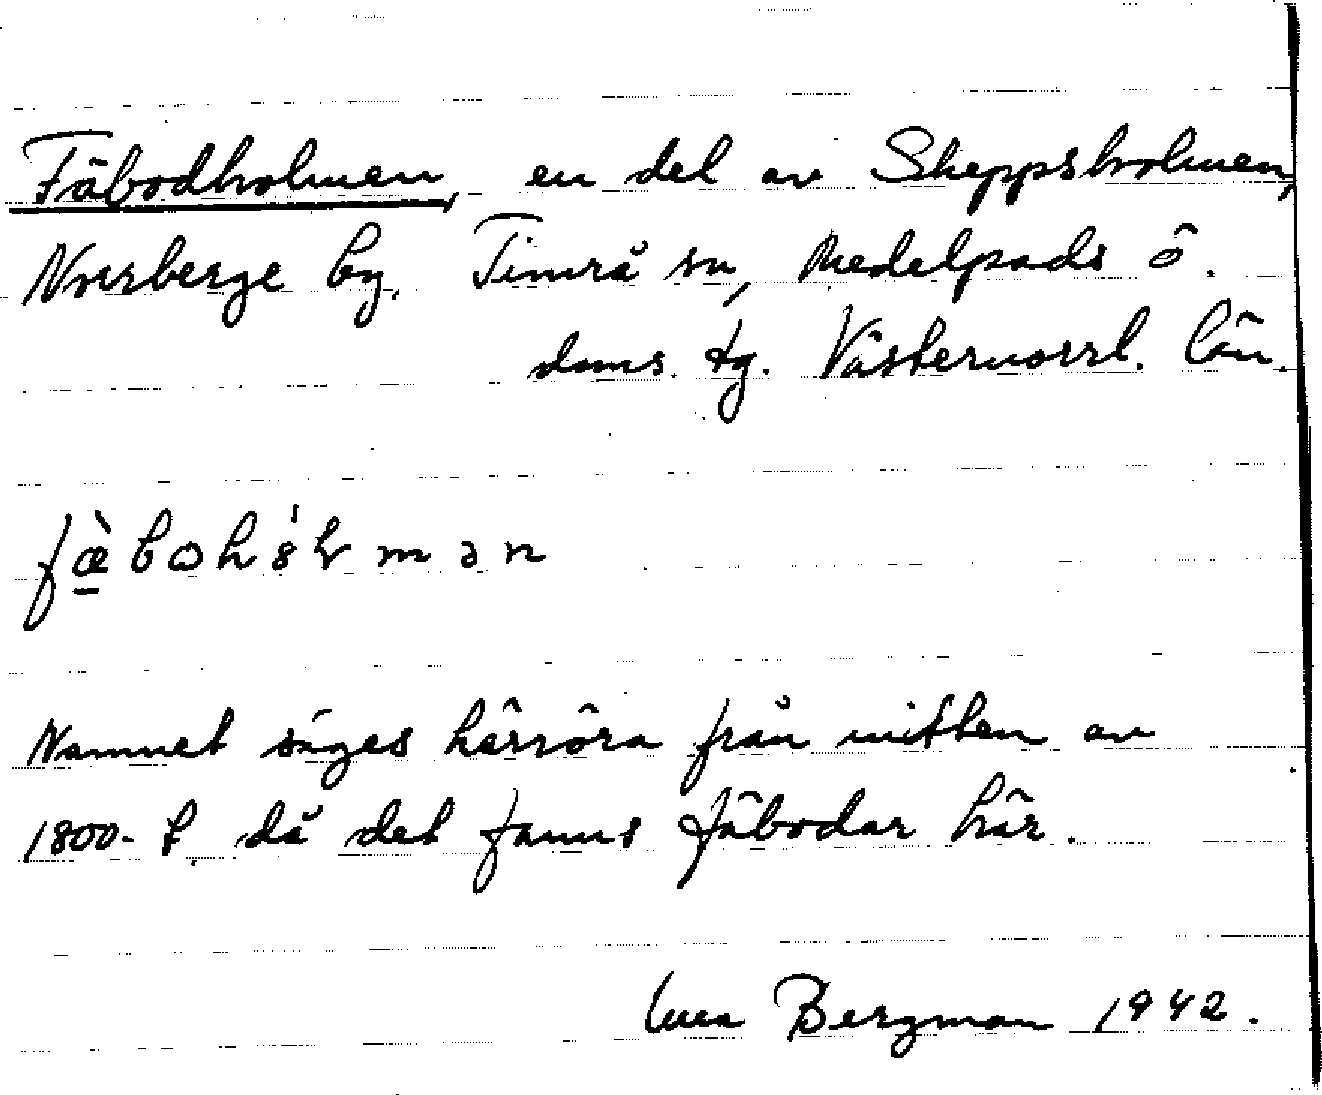 Fäbodholmen, en del av Skeppsholmen,
Norrberge by, Timrå sn, Medelpads ö.
doms. tg. Västernorrl. län.
fæ̀bωhölmən
Namnet säges härröra från mitten av
1800-t, då det fanns fäbodar här.
Bergman 1942.